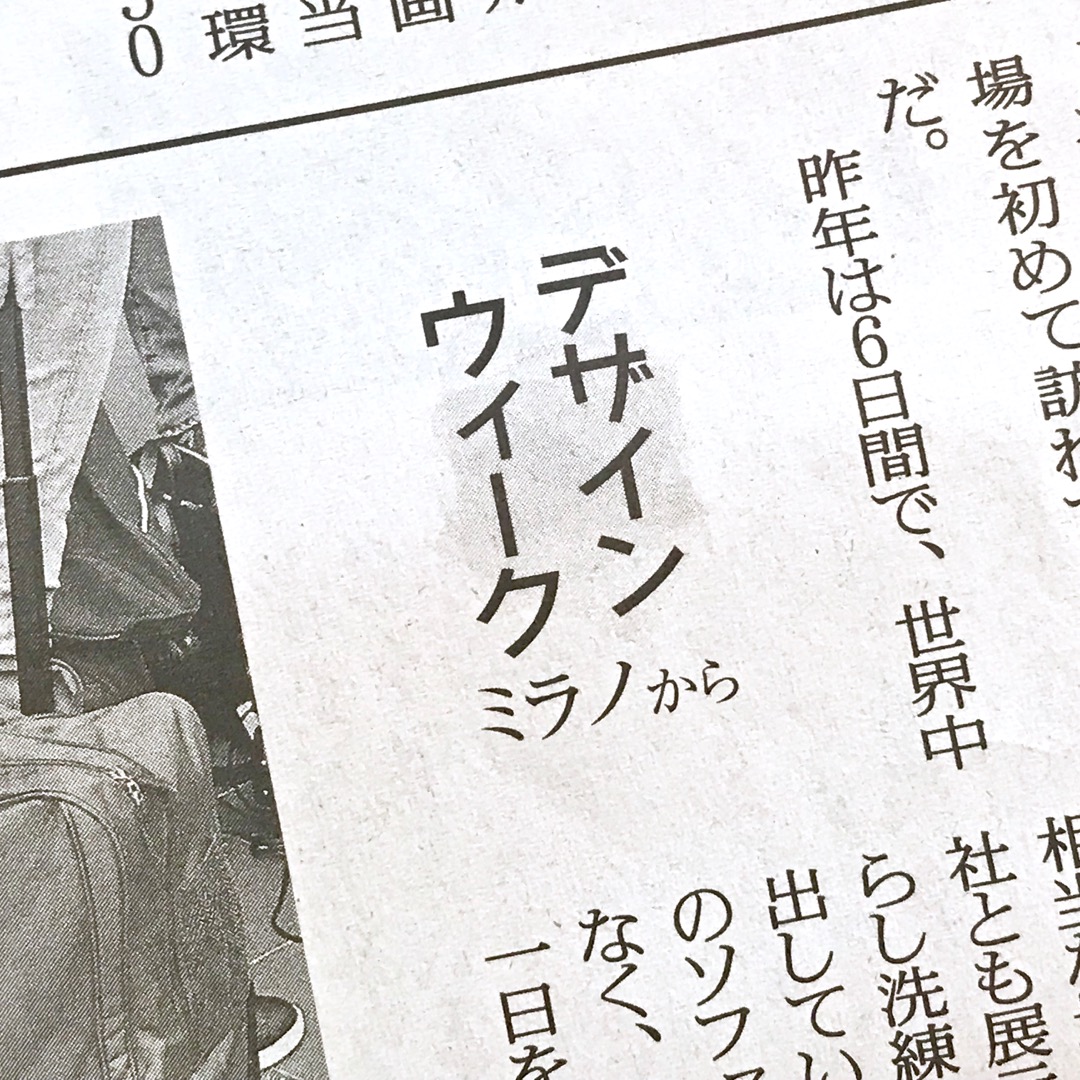 環当画
場を初めて訪れ
だ。
昨年は6日間で、世界中
デザイン
ウィーク
ミラノから
相当
社とも展示
らし洗練
出してい
のソファ
なく、
一日を